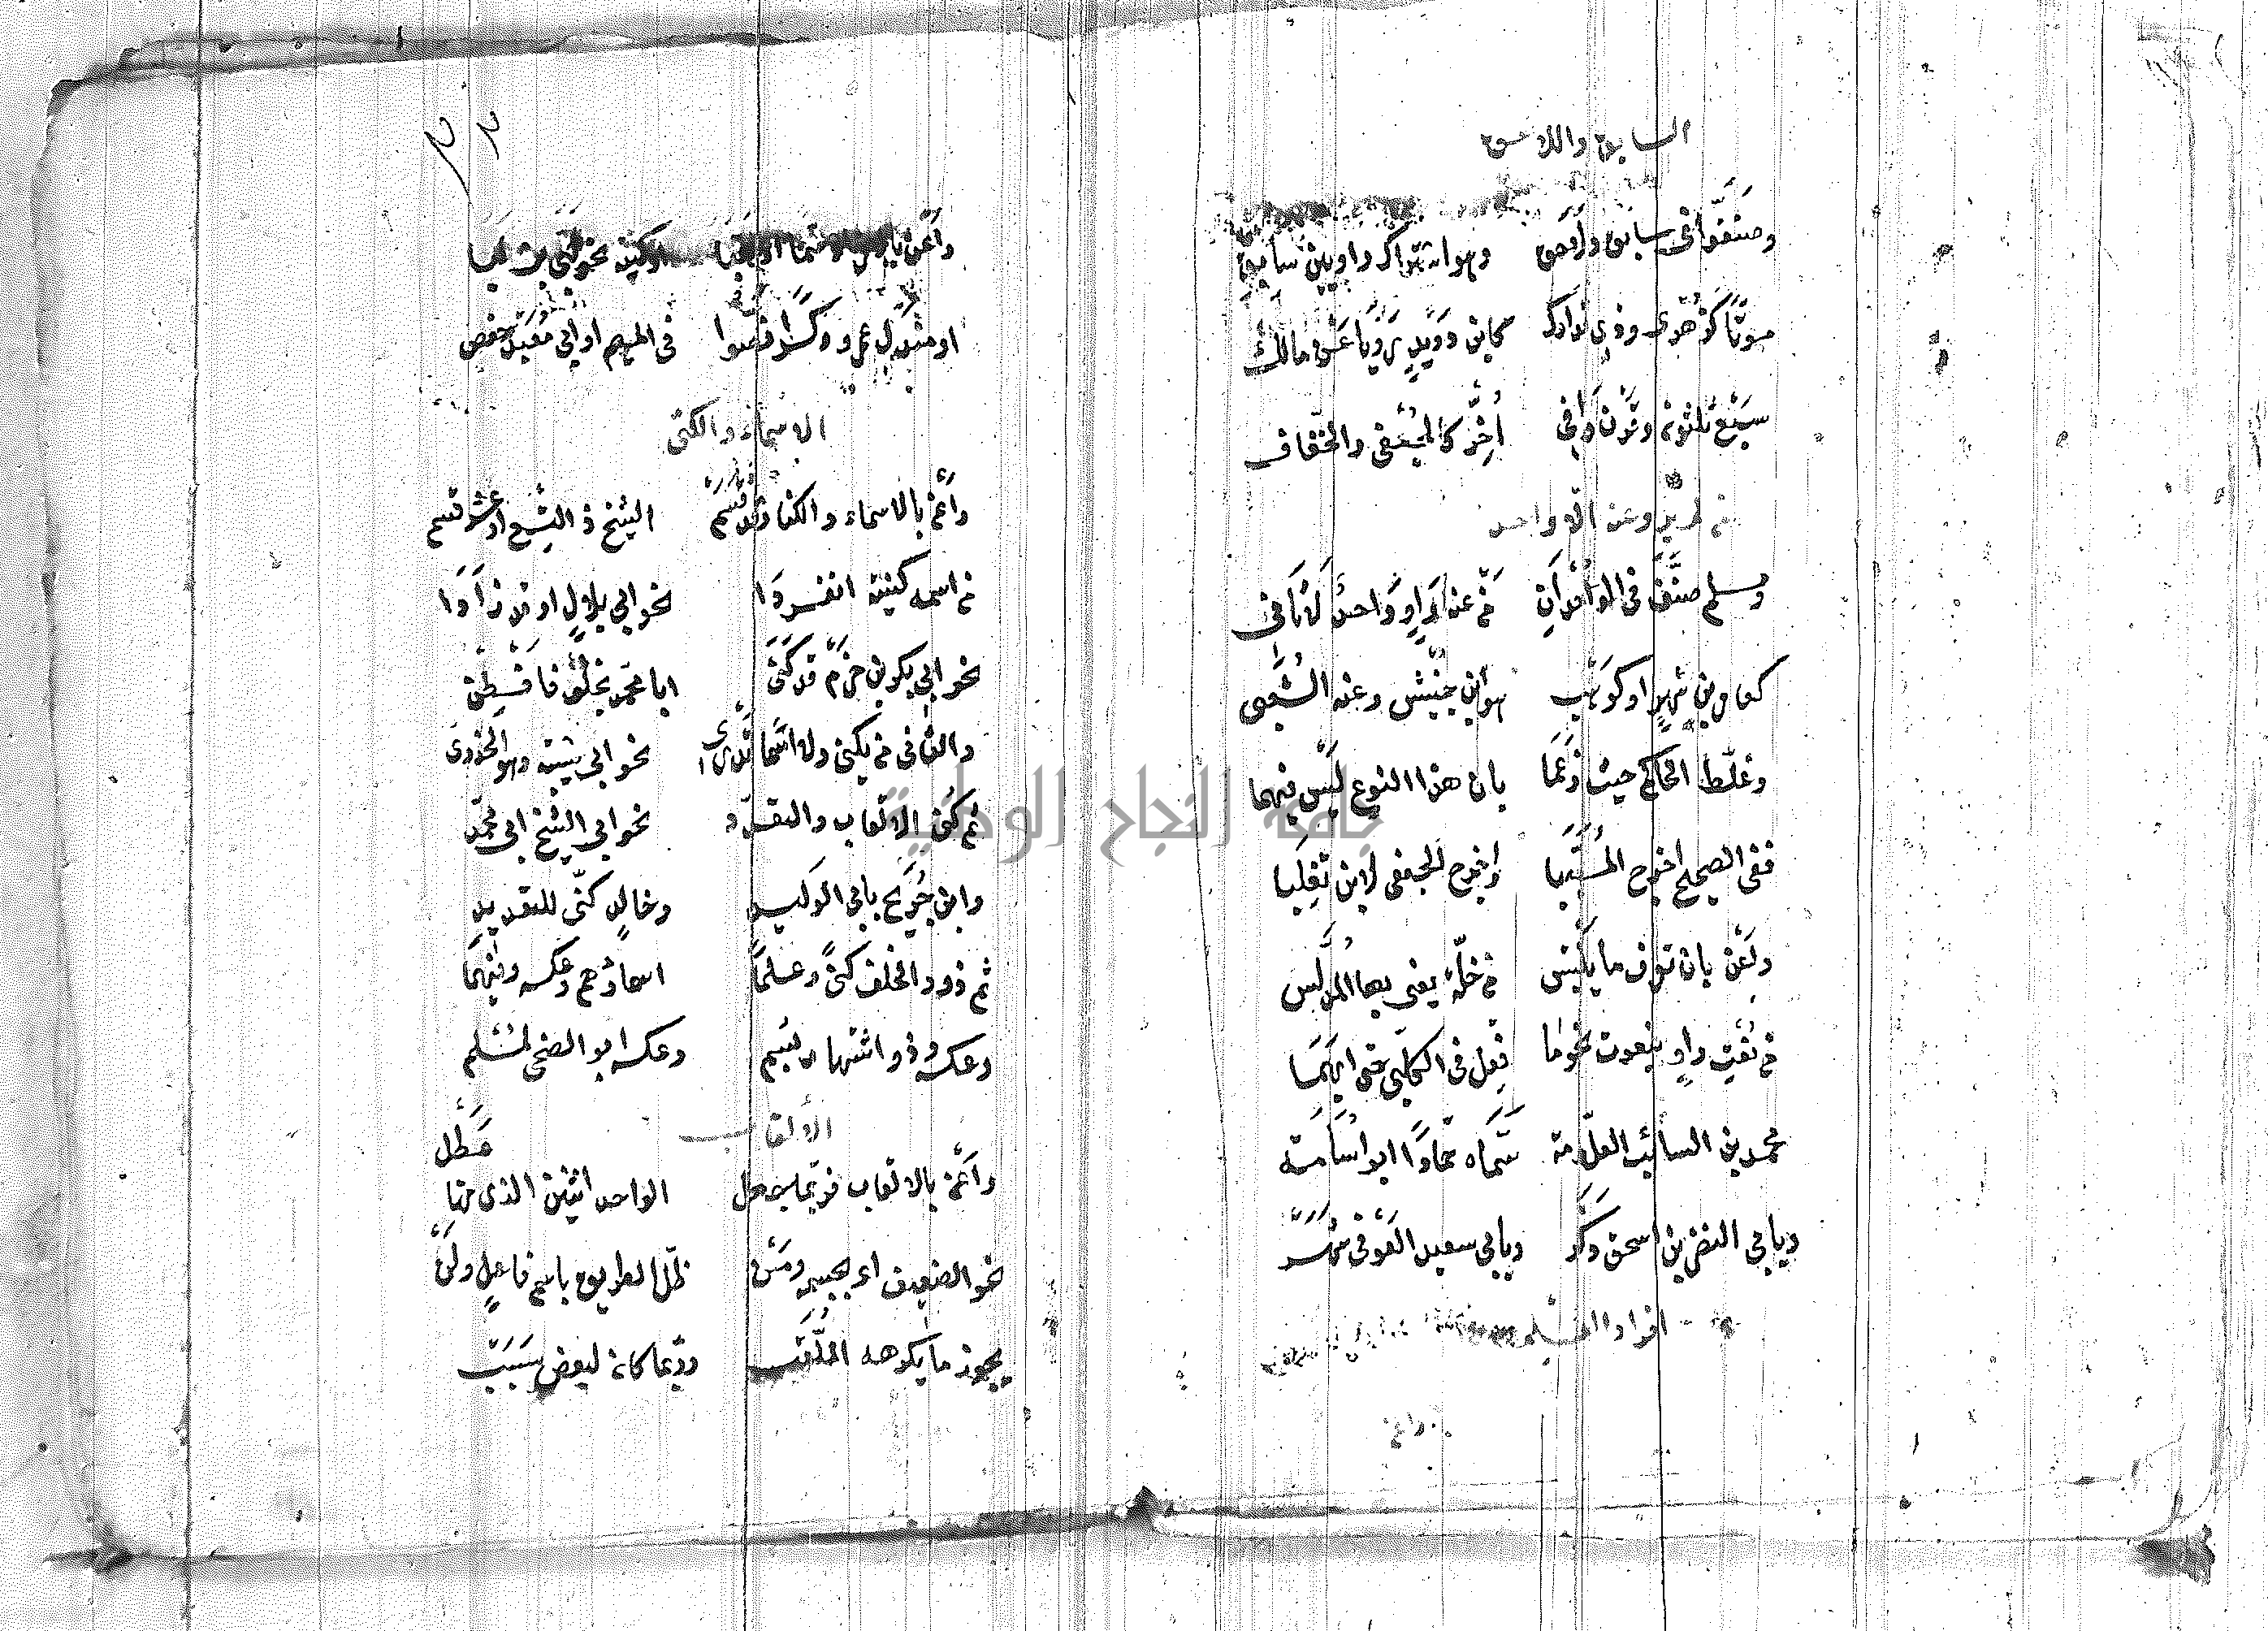 السابق واللاحق
وصنفوا في سابق ولاحق وهو اشتراك راويين سابق
موتا كزهري وذي تدارك كابن دويد رويا عن مالك
سبع ثلثون وقرن وافي أخر كالجعفي والخفاف
من لم يرو عنه الا واحد
ومسلم صنف في الوحدان من عنه راو واحد لا ثاني
كعامر بن شهر او كوهب هو ابن خنبش وعنه الشعبي
وغلط الحاكم حيث زعما بان هذا النوع ليس فيهما
ففي الصحيح اخرج المسيبا واخرج الجعفي لابن تغلبا
واعن بان تعرف ما يلتبس من خلة يعنى بها المدلس
من نعت راو بنعوت نحو ما فعل في الكلبي حتى ابهما
محمد بن السائب العلامة سماه حمادا ابو اسامة
وبابي النضر بن اسحق ذكر وبابي سعيد العوفي شهر
افراد العلم
واعن
او مندل عمرو وكسرا نصوا في الميم او ابي معيد حفص
الاسماء والكنى
واعن بالاسماء والكنا وقد قسم الشيخ ذا لتسع او عشر قسم
من اسمه كنيته انفردا نحو ابي بلال او قد زادا
نحو ابي بكر بن حزم قد كني ابا محمد بخلف فافطن
والثان في من يكنى ولا اسما ندري نحو ابي شيبة وهو الخدري
ثم كنى الالقاب والتعدد نحو ابي الشيخ ابي محمد
وابن جريج بابي الوليد وخالد كنى للتعديد
ثم ذوو الخلف كنى وعلما اسماؤهم وعكسه وفيهما
وعكسه وذو اشتهار بسم وعكسه ابو الضحى لمسلم
الألقاب
واعن بالالقاب فربما جعل الواحد اثنين الذي منها عطل
نحو الضعيف اي بجسمه ومن ضل الطريق باسم فاعل ولن
يجوز ما يكرهه الملقب وربما كان لبعض سبب